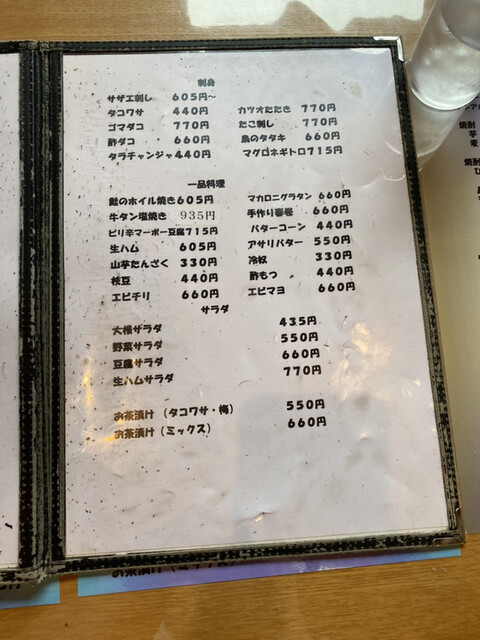 刺身
サザエ刺し 605円～
タコワサ 440円 カツオたたき 770円
ゴマダコ 770円 たこ刺し 770円
酢ダコ 660円 鳥のタタキ 660円
タラチャンジャ 440円 マグロネギトロ 715円
一品料理
鮭のホイル焼き 605円 マカロニグラタン 660円
牛タン塩焼き 935円 手作り春巻 660円
ピリ辛マーボー豆腐 715円 バターコーン 440円
生ハム 605円 アサリバター 550円
山芋たんざく 330円 冷奴 330円
枝豆 440円 酢もつ 440円
エビチリ 660円 エビマヨ 660円
サラダ
大根サラダ 435円
野菜サラダ 550円
豆腐サラダ 660円
生ハムサラダ 770円
お茶漬け（タコワサ・梅） 550円
お茶漬け（ミックス） 660円
焼酎
芋
麦
焼酎